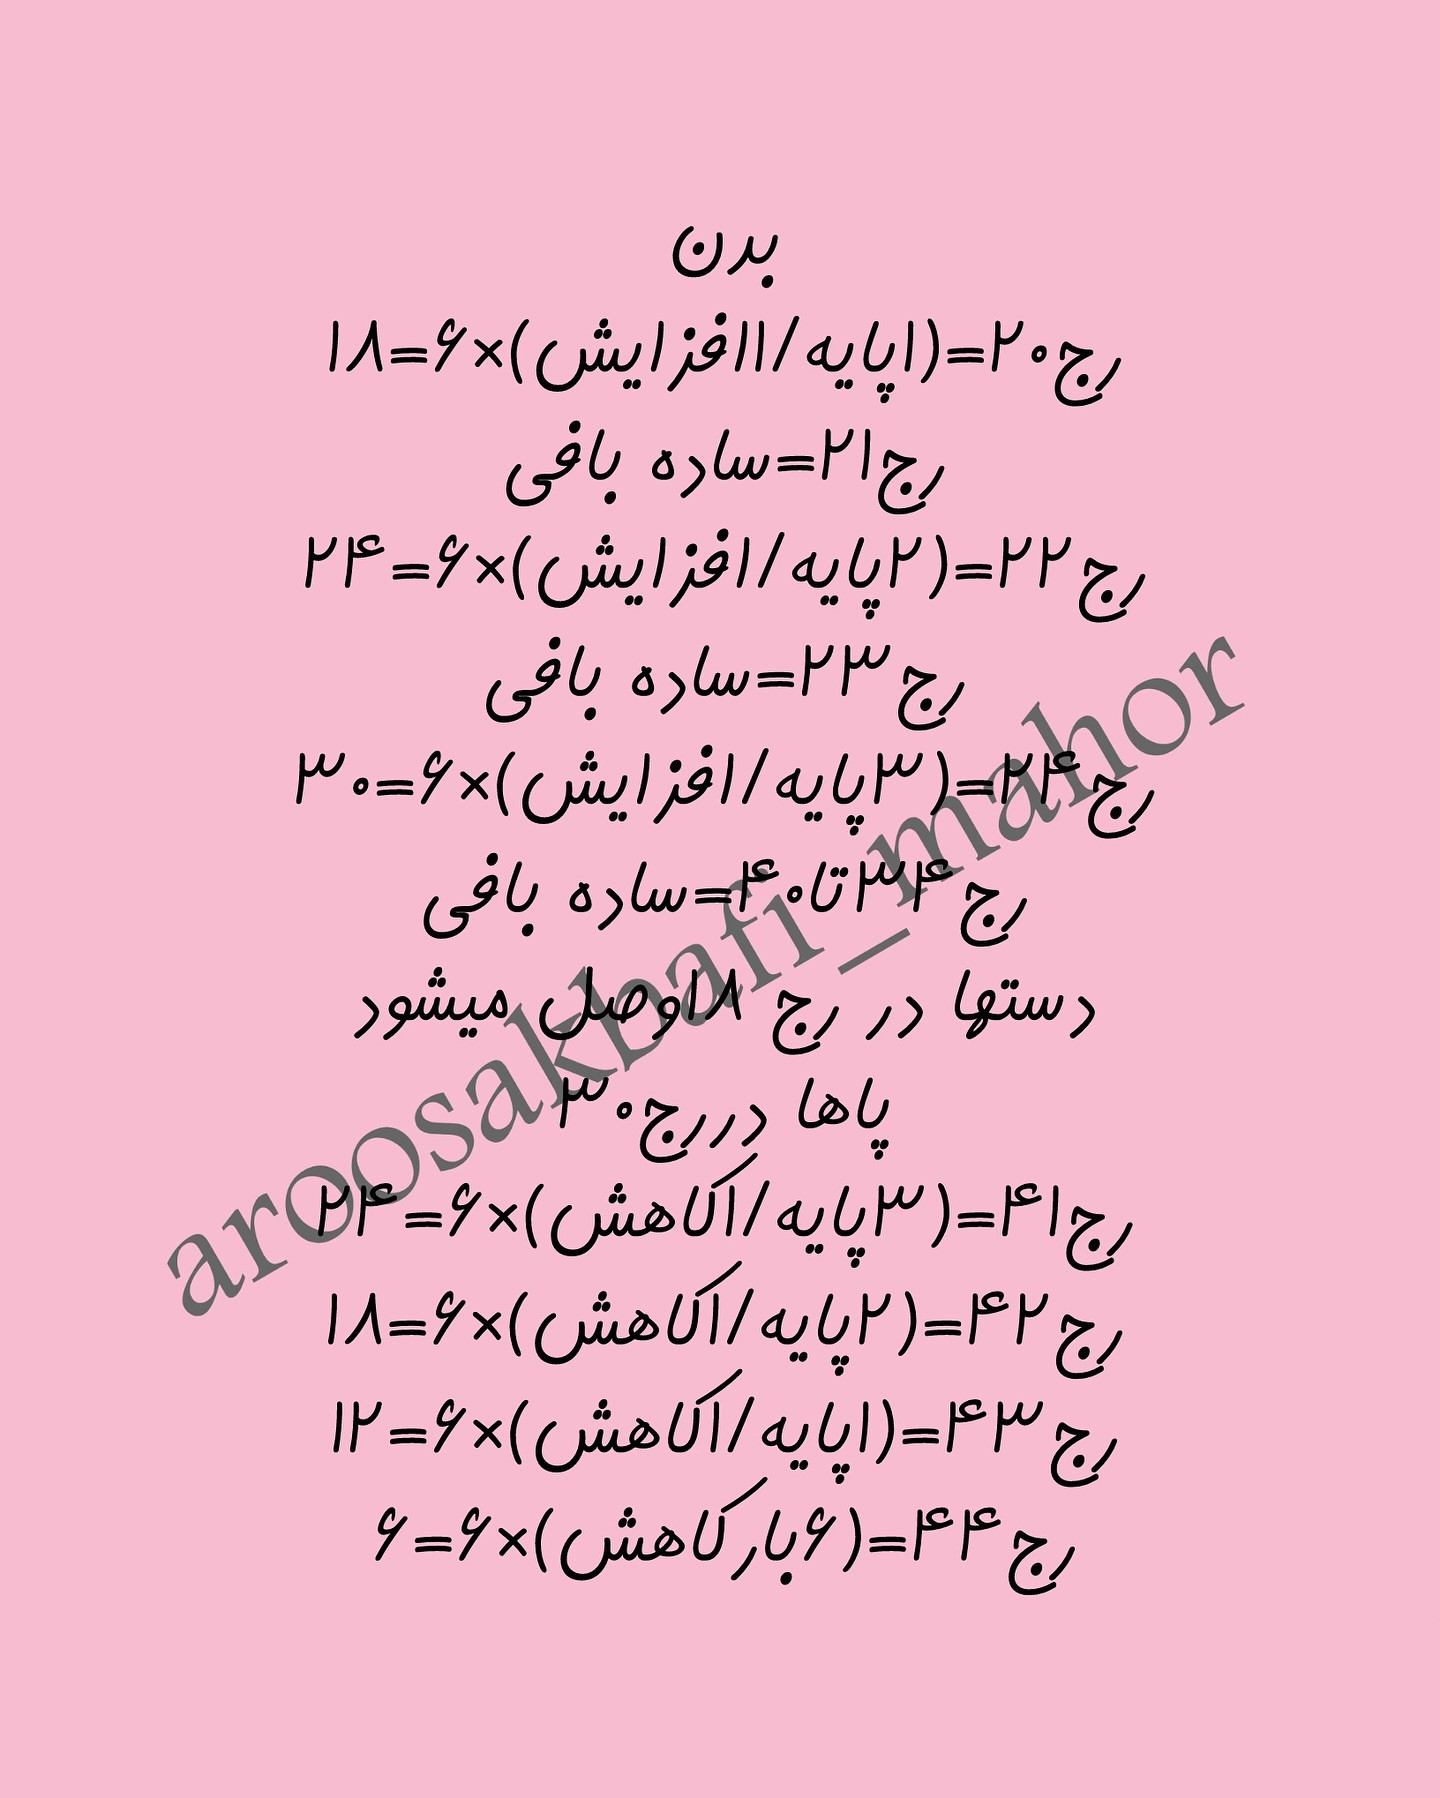 بدن
رج۲۰=(۱پایه/۱۱فزایش)×۶=۱۸
رج۲۱=ساده بافی
رج۲۲=(۲پایه/۱فزایش)×۶=۲۴
رج۲۳=ساده بافی
رج۲۴=(۳پایه/۱فزایش)×۶=۳۰
رج۳۴تا۴۰=ساده بافی
دستها در رج ۱۸وصل میشود
پاها دررج۳۰
رج۴۱=(۳پایه/۱کاهش)×۶=۲۴
رج۴۲=(۲پایه/۱کاهش)×۶=۱۸
رج۴۳=(۱پایه/۱کاهش)×۶=۱۲
رج۴۴=(۶بارکاهش)×۶=۶
aroosakbafi_mahor